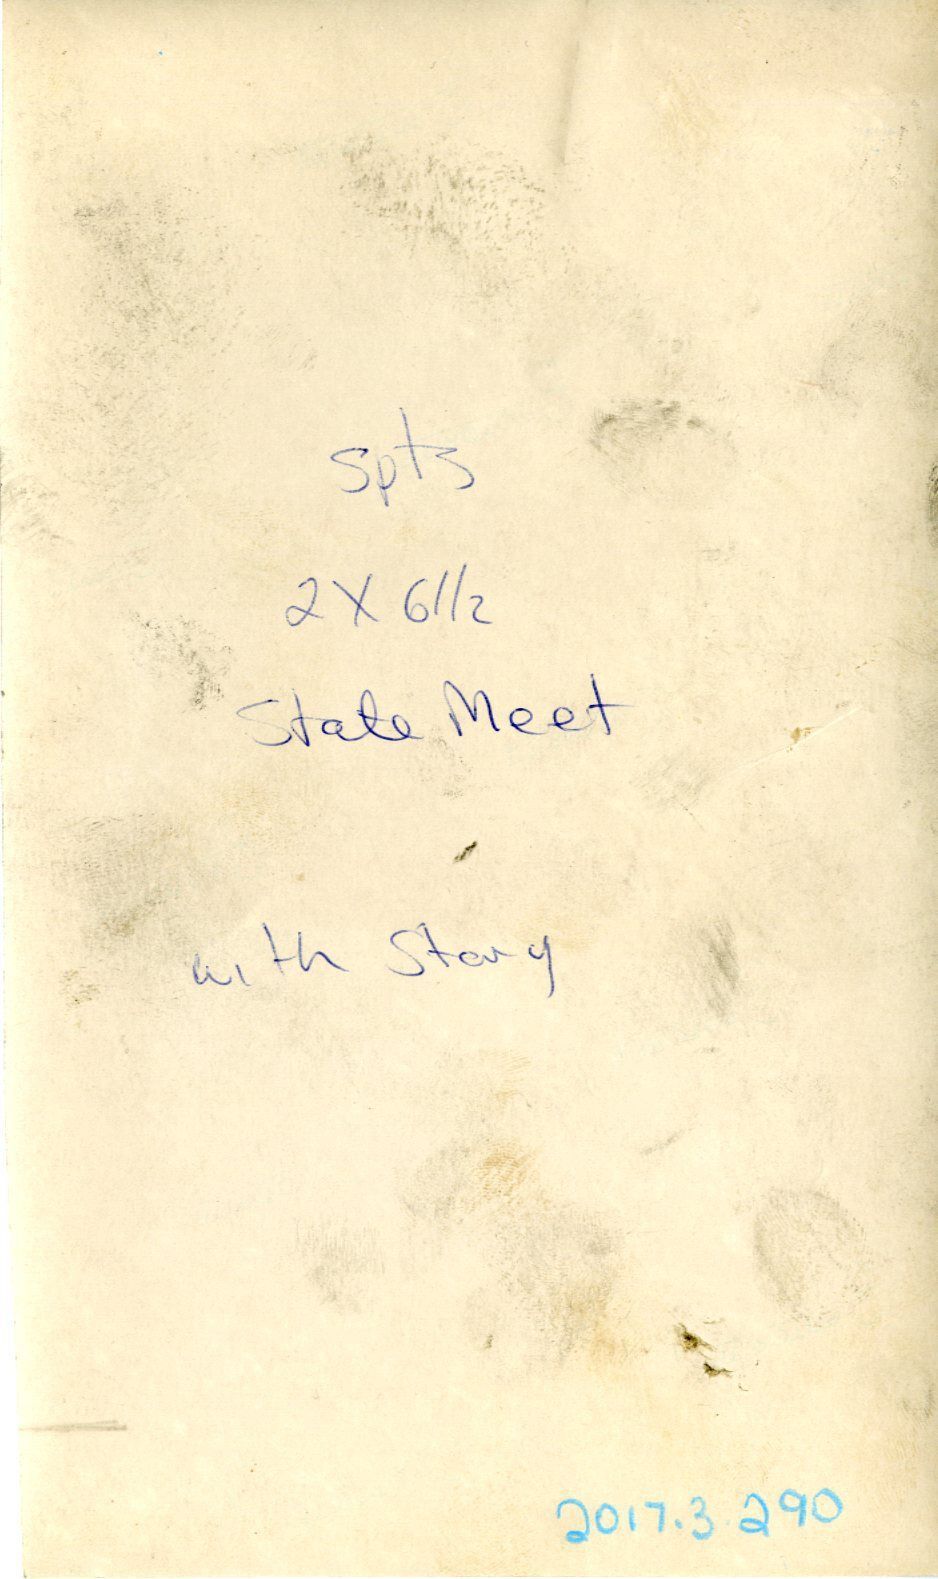 spts
2 X 6 1/2
State Meet
with Story
2017.3.290